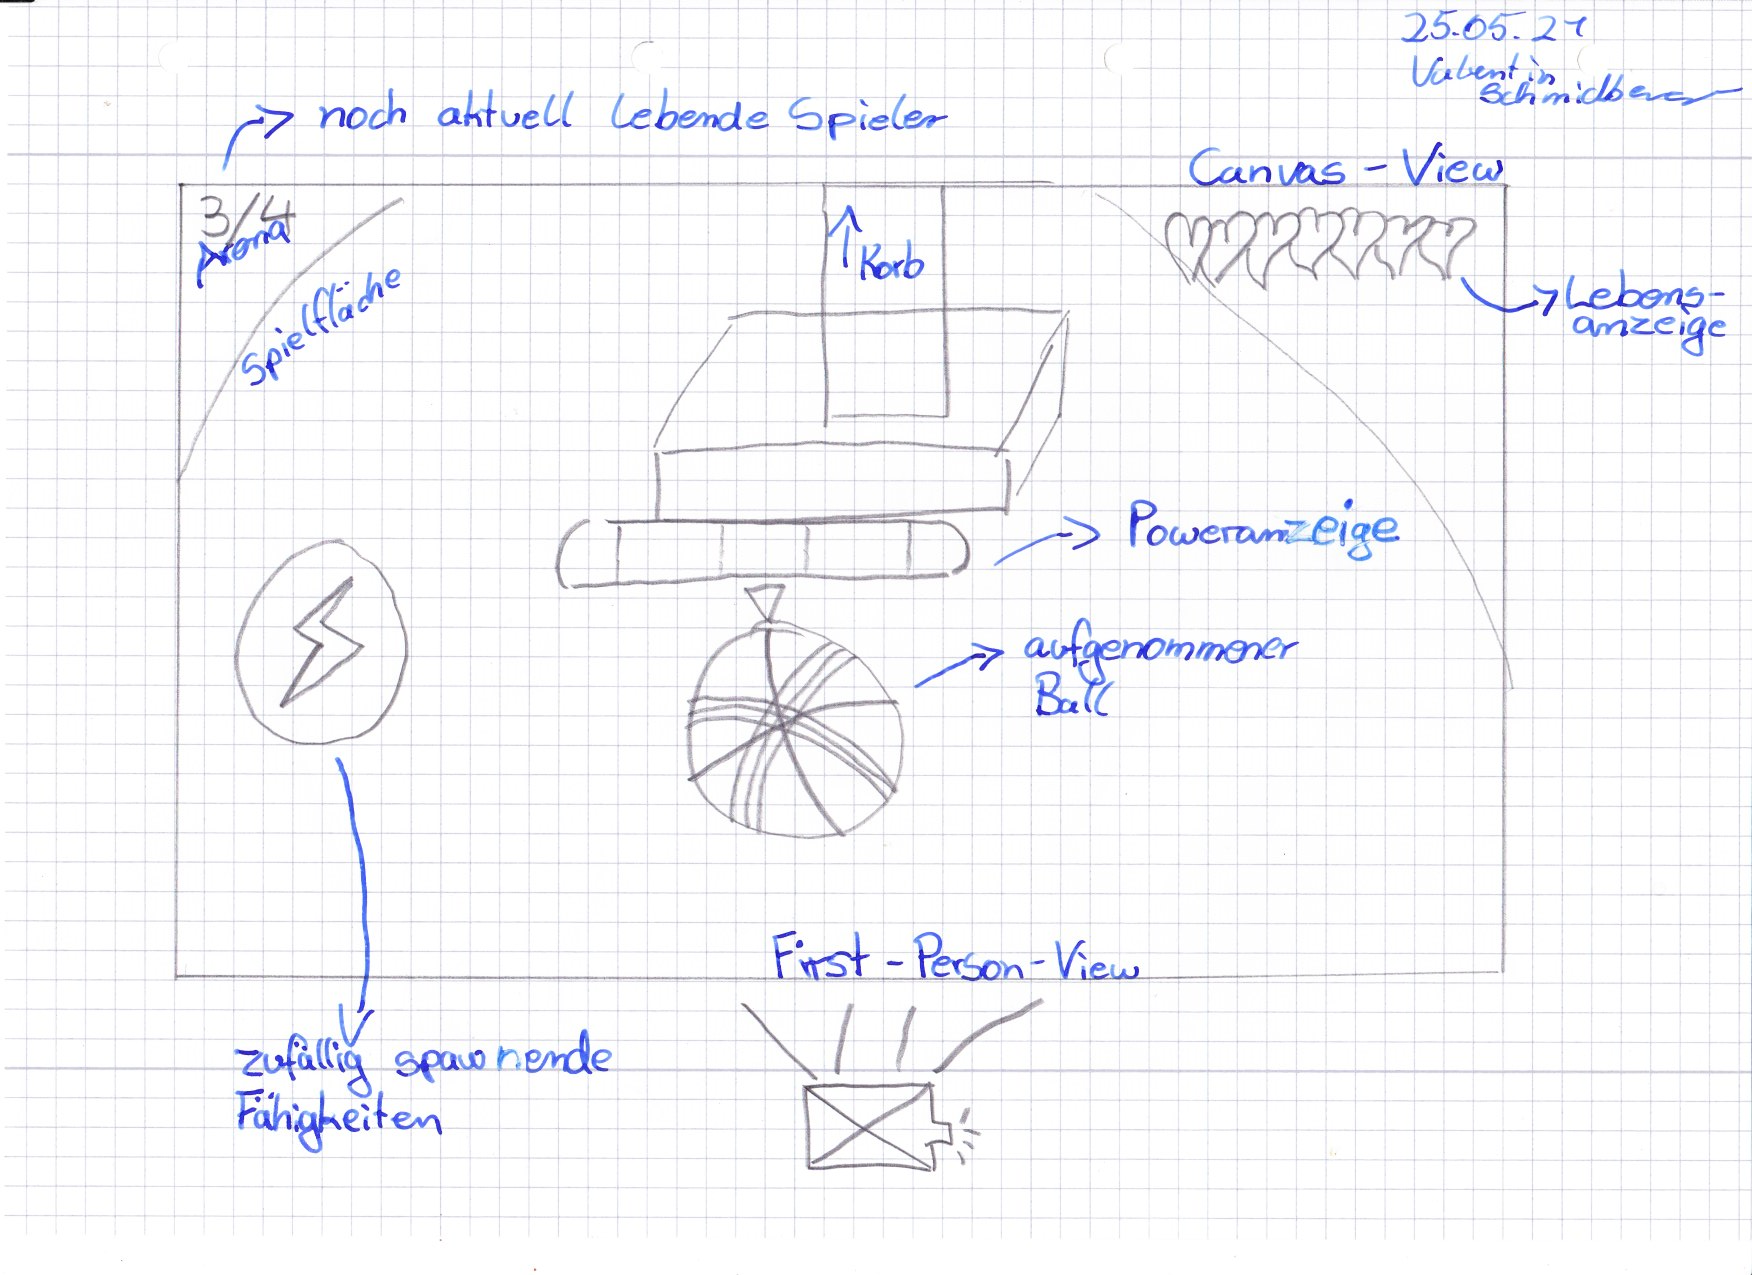 25.05.21
Valentin
Schmidberger
noch aktuell lebende Spieler
Canvas - View
3/4
Arena
Korb
Spielfläche
Lebens-
anzeige
Poweranzeige
aufgenommener
Ball
First - Person - View
zufällig spawnende
Fähigkeiten